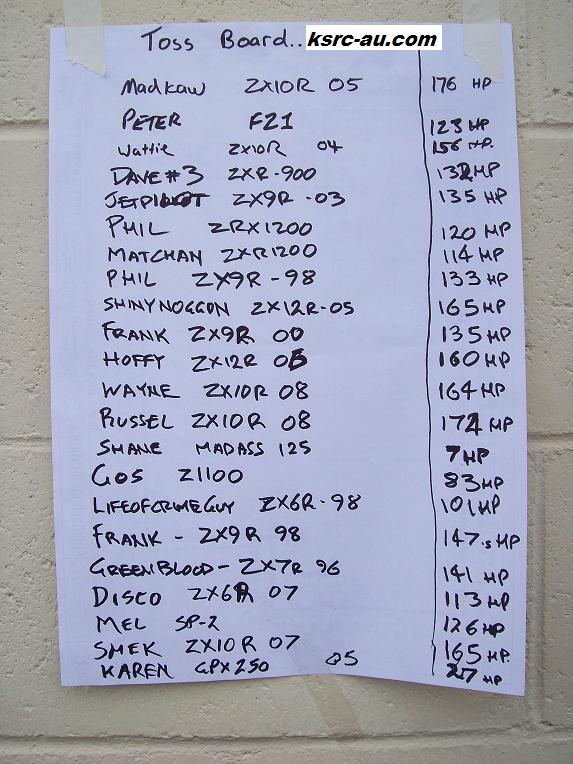 Toss Board.. ksrc-au.com
Madkaw ZX10R 05 176 HP
PETER FZ1 123 HP
Wattie ZX10R 04 156 HP.
DAVE #3 ZXR-900 132 HP
JETPILOT ZX9R -03 135 HP
PHIL ZRX1200 120 HP
MATCHAN ZXR1200 114 HP
PHIL ZX9R -98 133 HP
SHINYNOGGON ZX12R-05 165 HP
FRANK ZX9R 00 135 HP
HOFFY ZX12R 0 160 HP
WAYNE ZX10R 08 164 HP
RUSSEL ZX10R 08 174 HP
SHANE MADASS 125 7 HP
GOS Z1100 83 HP
LIFEOFCRIMEGUY ZX6R -98 101 HP
FRANK - ZX9R 98 147.5 HP
GREENBLOOD - ZX7R 96 141 HP
DISCO ZX6R 07 113 HP
MEL SP-2 126 HP
SMEK ZX10R 07 165 HP.
KAREN GPX250 05 27 HP